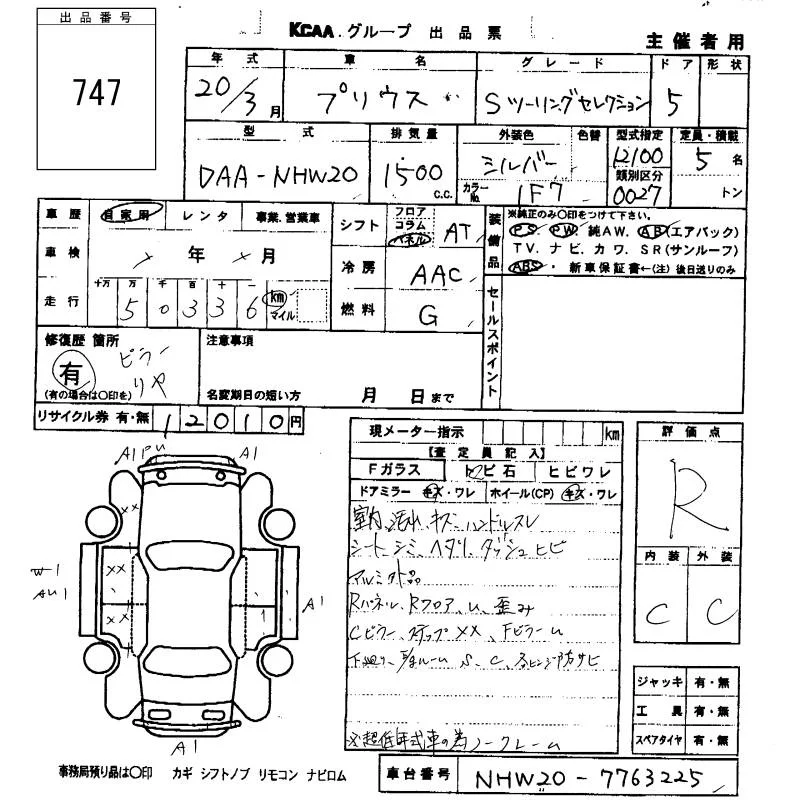 出品番号
747
KCAA グループ 出品票
主催者用
年式 車名 グレード ドア 形状
20/3月 プリウス Sツーリングセレクション 5
型式 排気量 外装色 色替 型式指定 定員・積載
DAA-NHW20 1500 C.C. シルバー 12100 5名
カラーNo. 1F7 類別区分 0027 トン
車歴 自家用 レンタ 事業、営業車
車検 年 月
走行 十万 万 千 百 十 一
5 0 3 3 6 km マイル
シフト フロア コラム パネル AT
冷房 AAC
燃料 G
装備品
※純正のみ〇印をつけて下さい。
PS PW 純AW. AB(エアバック)
TV. ナビ. カワ. SR(サンルーフ)
ABS・新車保証書←(注)後日送りのみ
セールスポイント
修復歴 箇所
有 ピラー リヤ
(有の場合は〇印を)
注意事項
名変期日の短い方 月 日まで
リサイクル券 有・無 12010円
現メーター指示 km
【査定員記入】
Fガラス トビ石 ヒビワレ
ドアミラー キズ・ワレ ホイール(CP) キズ・ワレ
室内、汚れ キズー ハンドルスレ
シート シミ ヘタリ ダッシュ ヒビ
アルミ外品
Rパネル、Rフロア、U、歪み
Cピラー、ステップ XX、FピラーU
S、C、
※超低年式車の為ノークレーム
評価点
R
内装 外装
C C
ジャッキ 有・無
工具 有・無
スペアタイヤ 有・無
A1 A1
XX
XX
W1
AU1
XX
A1
A1
事務局預り品は〇印 カギ シフトノブ リモコン ナビロム
車台番号 NHW20-7763225